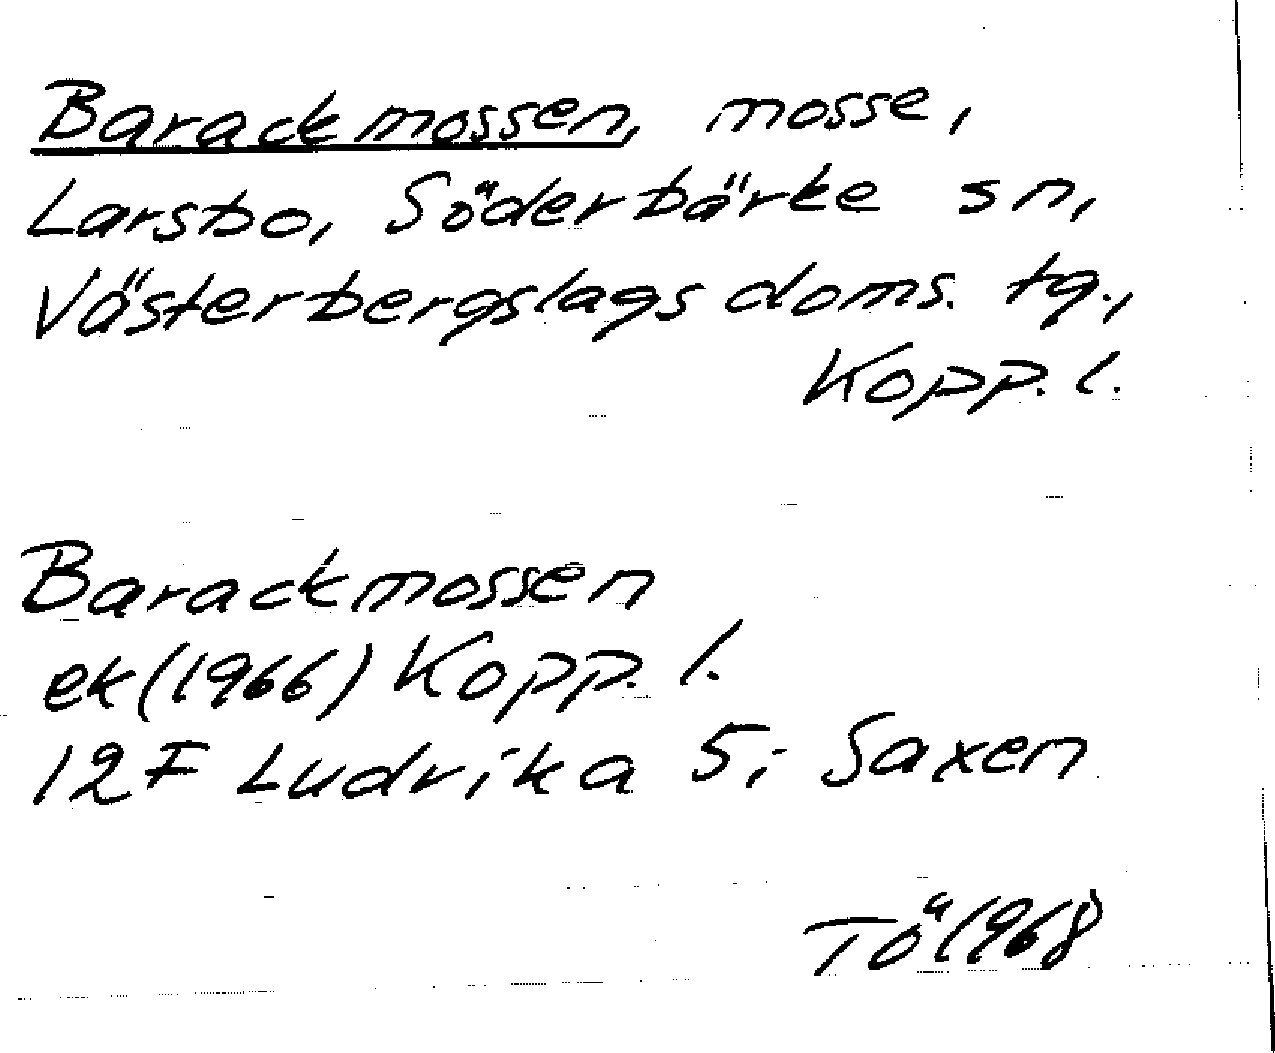 Barackmossen, mosse,
Larsbo, Söderbärke sn,
Västerbergslags doms. tg.,
Kopp. l.
Barackmossen
ek (1966) Kopp. l.
12 F Ludvika 5i Saxen
TÖ 1968